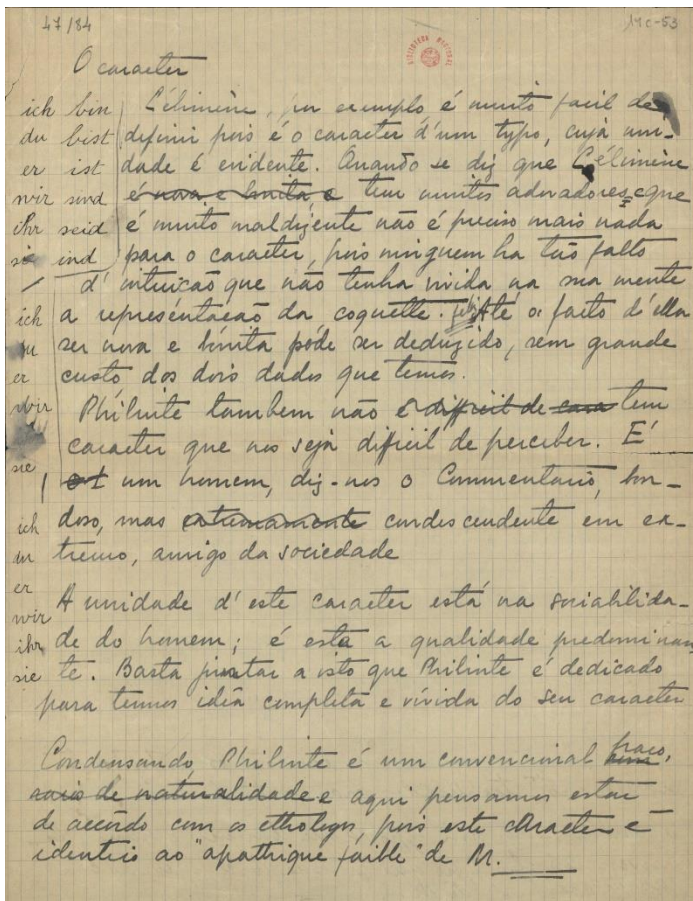 47/84
14C-53
BIBLIOTECA NACIONAL
O caracter
ich bin
du bist
er ist
wir sind
ihr seid
sie sind
ich
du
er
wir
sie
ich
du
er
wir
ihr
sie
Célimène, por exemplo é muito facil de
definir pois é o caracter d'um typo, cuja uni-
dade é evidente. Quando se diz que Célimène
é nova e bonita, e tem muitos adoradores e que
é muito maldizente não é preciso mais nada
para o caracter, pois ninguem ha tão falto
d'intuicão que não tenha vivida na sua mente
a representação da coquette. Até o facto d'ella
ser nova e bonita póde ser deduzido, sem grande
custo, dos dois dados que temos.
Philinte tambem não é difficil de cara tem
caracter que nos seja difficil de perceber. É
um homem, diz-nos o Commentario, bon-
doso, mas extremamente condescendente em ex-
tremo, amigo da sociedade
A unidade d'este caracter está na sociabilida-
de do homem; é esta a qualidade predominan
te. Basta juntar a isto que Philinte é dedicado
para termos idêa completa e vívida do seu caracter
Condensando, Philinte é um convencional fraco,
de naturalidade e aqui pensamos estar
de accôrdo com os ethologos, pois este character é
identeis ao "apathique faible" de M.